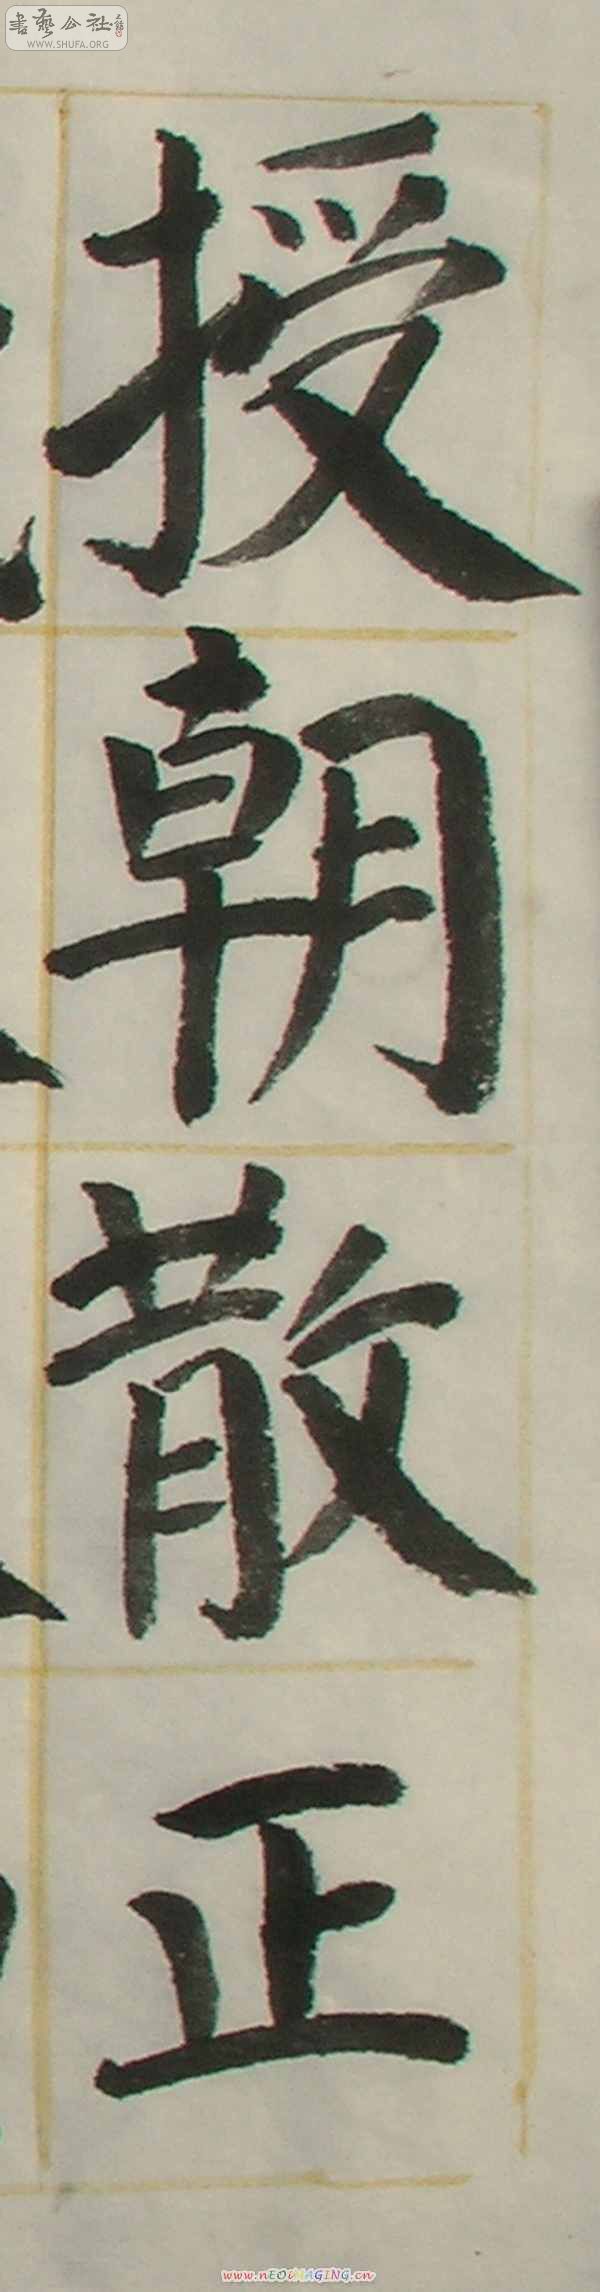 書藝公社
WWW.SHUFA.ORG
授朝散正
www.nEOiMAGING.cn